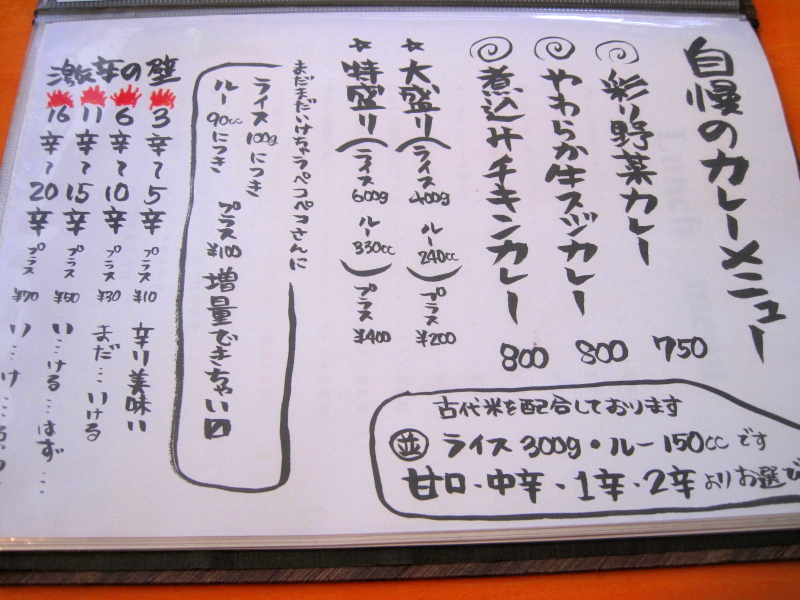 自慢のカレーメニュー
彩り野菜カレー 750
やわらか牛スジカレー 800
煮込みチキンカレー 800
古代米を配合しております
並 ライス 300g・ルー 150cc です
甘口・中辛・1辛・2辛 よりお選び
★ 大盛り(ライス 400g ルー 240cc) プラス ¥200
★ 特盛り(ライス 600g ルー 330cc) プラス ¥400
まだまだいけちゃうペコペコさんに
ライス 100gにつき
ルー 90ccにつき
プラス ¥100 増量できちゃい〼
激辛の壁
3辛〜5辛 プラス ¥10 辛り美味い
6辛〜10辛 プラス ¥30 まだ…いける
11辛〜15辛 プラス ¥50 い…ける…はず…
16辛〜20辛 プラス ¥70 い…け…